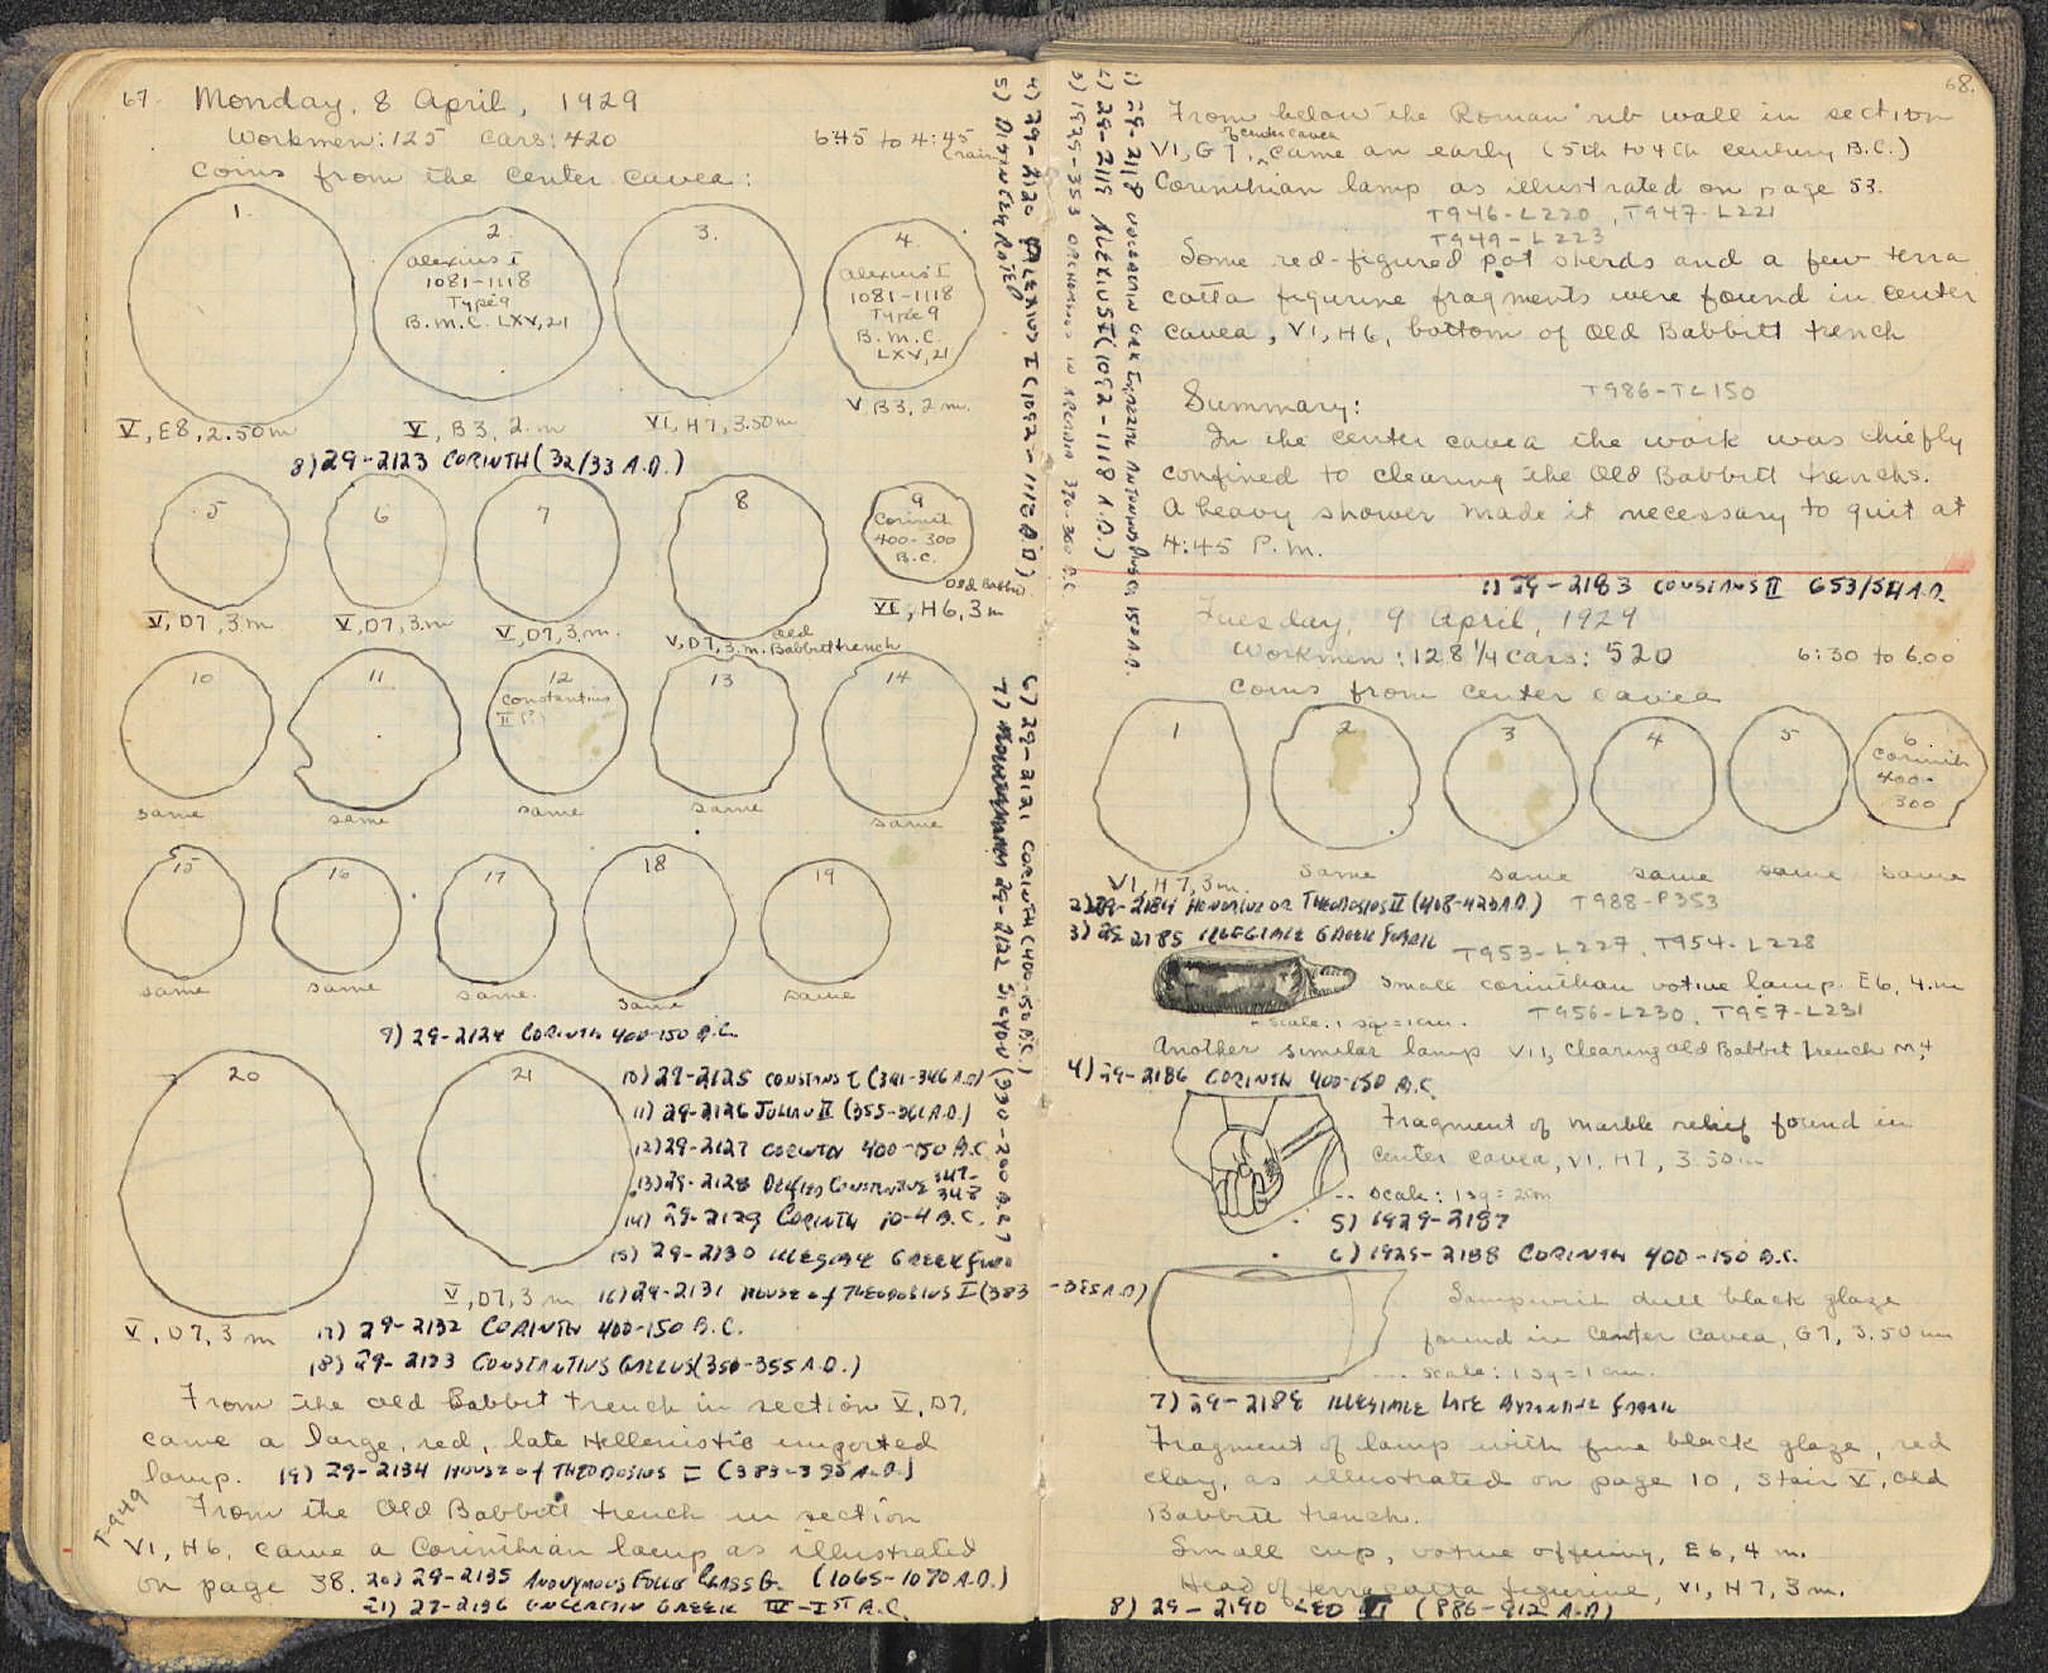 67. Monday, 8 April, 1929
Workmen: 125 Cars: 420 6:45 to 4:45
(rain)
Coins from the center cavea:
1.
2.
Alexius I
1081-1118
Type 9
B.M.C. LXV, 21
3.
4.
Alexius I
1081-1118
Type 9
B.M.C.
LXV, 21
V, E8, 2.50 m
V, B3, 2 m
VI, H7, 3.50 m
V B3, 2 m.
8) 29-2123 CORINTH (32/33 A.D.)
5
6
7
8
9
Corinth
400-300
B.C.
V, D7, 3 m
V, D7, 3 m
V, D7, 3 m.
V, D7, 3 m. Old Babbitt trench
Old Babbitt
VI, H6, 3 m
10
11
12
Constantius
II (?)
13
14
same
same
same
same
same
15
16
17
18
19
same
same
same.
same
same
9) 29-2124 CORINTH 400-150 B.C.
20
21
10) 29-2125 CONSTANS I (341-346 A.D)
11) 29-2126 JULIAN II (355-361 A.D.)
12) 29-2127 CORINTH 400-150 B.C
13) 29-2128 DEIFIED CONSTANTINE 347-
348
14) 29-2129 CORINTH 10-4 B.C.
15) 29-2130 ILLEGIBLE GREEK
V, D7, 3 m 16) 29-2131 HOUSE of THEODOSIUS I (383
V, D7, 3 m 17) 29-2132 CORINTH 400-150 B.C.
18) 29-2133 CONSTANTIUS GALLUS (350-355 A.D.)
From the old Babbit trench in section V, D7,
came a large, red, late Hellenistic imported
lamp. 19) 29-2134 HOUSE of THEODOSIUS I (383-395 A.D.)
T-949
From the Old Babbitt trench in section
VI, H6, came a Corinthian lamp as illustrated
on page 38. 20) 29-2135 ANONYMOUS FOLLIS CLASS G. (1065-1070 A.D.)
21) 29-2136 UNCERTAIN GREEK IV-IST B.C.
4) 29-2120 ALEXIUS I (1092-1118 A.D)
5) DISINTEGRATED
6) 29-2121 CORINTH (400-150 B.C.)
7) 29-2122 SICYON (330-200 B.C)
68.
1) 29-2118 UNCERTAIN GRK IMPERIAL ANTONINUS PIUS 150 A.D.
2) 29-2119 ALEXIUS I (1092-1118 A.D.)
3) 1929-353 ORCHOMENOS IN ARCADIA 370-300 B.C
From below the Roman rub wall in section
VI, G7, of center cavea came an early (5th to 4th century B.C.)
Corinthian lamp as illustrated on page 53.
T946-L220, T947-L221
T949-L223
Some red-figured pot sherds and a few terra
cotta figurine fragments were found in center
cavea, VI, H6, bottom of Old Babbitt trench
T986-TC150
Summary:
In the center cavea the work was chiefly
confined to clearing the Old Babbitt trenchs.
A heavy shower made it necessary to quit at
4:45 P.M.
1) 29-2183 CONSTANS II 653/54 A.D.
Tuesday, 9 April, 1929
Workmen: 128 1/4 Cars: 520 6:30 to 6.00
Coins from center cavea
1
2
3
4
5
6
Corinth
400-
300
VI, H7, 3 m.
same
same
same
same
same
2) 29-2184 HONORIUS OR THEODOSIUS II (408-423 A.D.) T988-P353
3) 29 2185 ILLEGIBLE GREEK
T953-L227, T954-L228
Small corinthian votive lamp. E6, 4 m
scale: 1 sq = 1 cm.
T956-L230, T957-L231
Another similar lamp VII, clearing Old Babbit trench
4) 29-2186 CORINTH 400-150 B.C.
Fragment of marble relief found in
center cavea, VI, H7, 3.50 m
scale: 1 sq = 2 cm
5) 1929-2187
6) 1929-2188 CORINTH 400-150 B.C.
Lamp with dull black glaze
found in center cavea, G7, 3.50 m
scale: 1 sq = 1 cm.
7) 29-2189 ILLEGIBLE LATE BYZANTINE
Fragment of lamp with fine black glaze, red
clay, as illustrated on page 10, Stair V, old
Babbitt trench.
Small cup, votive offering, E6, 4 m.
Head of terracotta figurine, VI, H7, 3 m.
8) 29-2190 LEO VI (886-912 A.D)